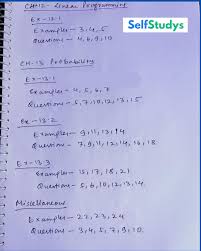 SelfStudys
CH-12- Linear Programming
Ex-12.1
Examples - 3,4,5
Questions - 4,6,9,10
CH-13 Probability
Ex-13.1
Examples - 4,5,6,7
Questions - 5,7,10,12,13,15
Ex-13.2
Examples - 9,11,13,14
Questions - 7,9,11,12,14,16,18
Ex-13.3
Examples - 15,17,18,21
Questions - 5,6,10,12,13,14
Miscellaneous
Examples - 22,23,24
Questions - 3,4,5,7,9,10